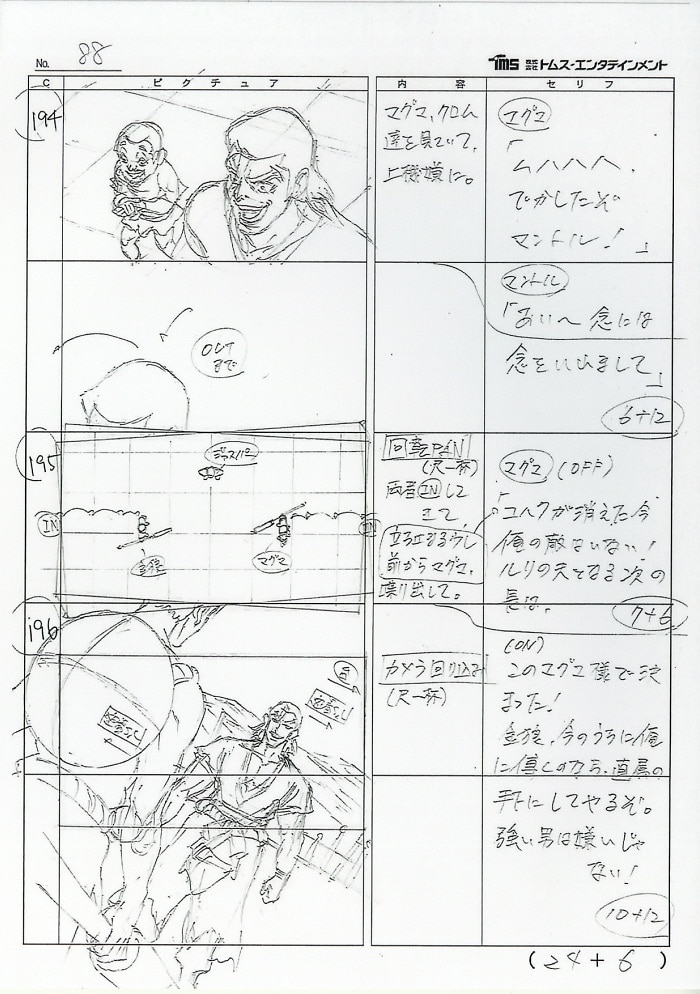 No. 88
TMS 株式会社 トムス・エンタテインメント
C ピクチュア 内容 セリフ
194
マグマ、クロム
達を見ていて、
上機嫌に。
マグマ
「ムハハハ、
でかしたぞ
マントル!」
OUT
まで
マントル
「あい〜 念には
念をいれまして」
6+12
195
ジャスパー
IN
金狼
マグマ
IN
回転PAN
(尺一杯)
両者INして
きて、
立ち止まるらし
前からマグマ、
喋り出して。
マグマ (OFF)
「コハクが消えた今
俺の敵はいない!
ルリの夫となる次の
長は、
7+6
196
カメラ回り込み
(尺一杯)
(ON)
このマグマ様で決
まった!
金狼、今のうちに俺
に傅くのなら、直属の
手下にしてやるぞ。
強い男は嫌いじゃ
ない!
10+12
(24+6)